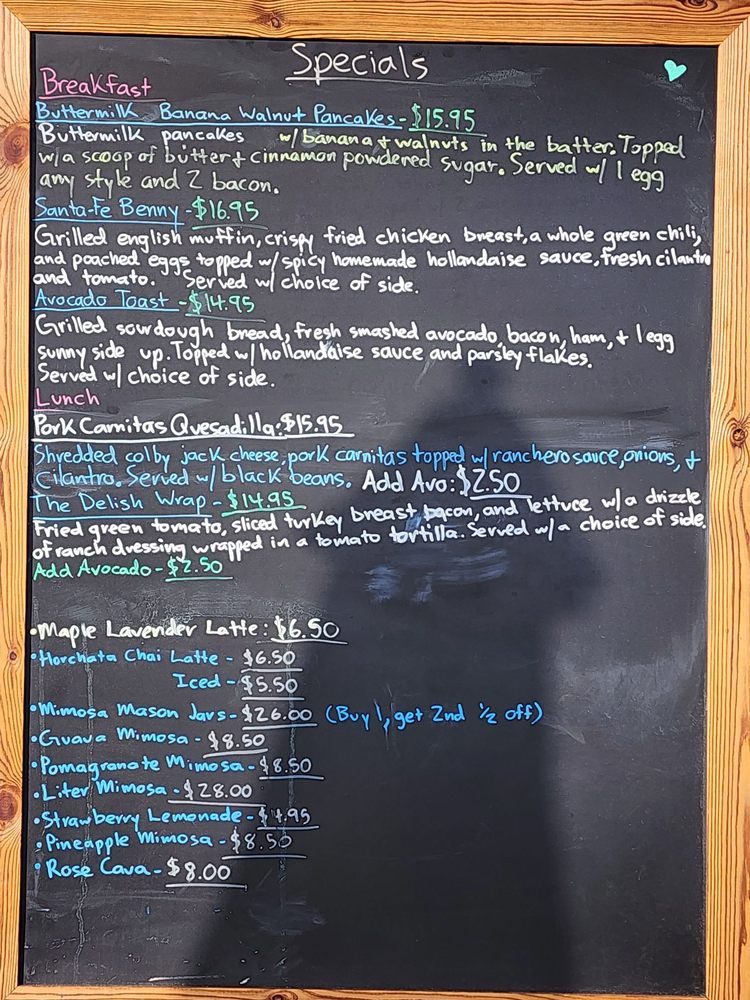 Specials
Breakfast
Buttermilk Banana Walnut Pancakes - $15.95
Buttermilk pancakes w/ banana + walnuts in the batter. Topped
w/a scoop of butter + cinnamon powdered sugar. Served w/ 1 egg
any style and 2 bacon.
Santa-Fe Benny - $16.95
Grilled english muffin, crispy fried chicken breast, a whole green chili,
and poached eggs topped w/ spicy homemade hollandaise sauce, fresh cilantro
and tomato. Served w/ choice of side.
Avocado Toast - $14.95
Grilled sourdough bread, fresh smashed avocado, bacon, ham, + 1 egg
sunny side up. Topped w/ hollandaise sauce and parsley flakes.
Served w/ choice of side.
Lunch
Pork Carnitas Quesadilla: $15.95
Shredded colby jack cheese, pork carnitas topped w/ ranchero sauce, onions, +
cilantro. Served w/ black beans. Add Avo: $2.50
The Delish Wrap - $14.95
Fried green tomato, sliced turkey breast bacon, and lettuce w/a drizzle
of ranch dressing wrapped in a tomato tortilla. Served w/a choice of side.
Add Avocado - $2.50
• Maple Lavender Latte: $6.50
• Horchata Chai Latte - $6.50
Iced - $5.50
• Mimosa Mason Jars - $26.00 (Buy 1, get 2nd 1/2 off)
• Guava Mimosa - $8.50
• Pomagranate Mimosa - $8.50
• Liter Mimosa - $28.00
• Strawberry Lemonade - $4.95
• Pineapple Mimosa - $8.50
• Rose Cava - $8.00